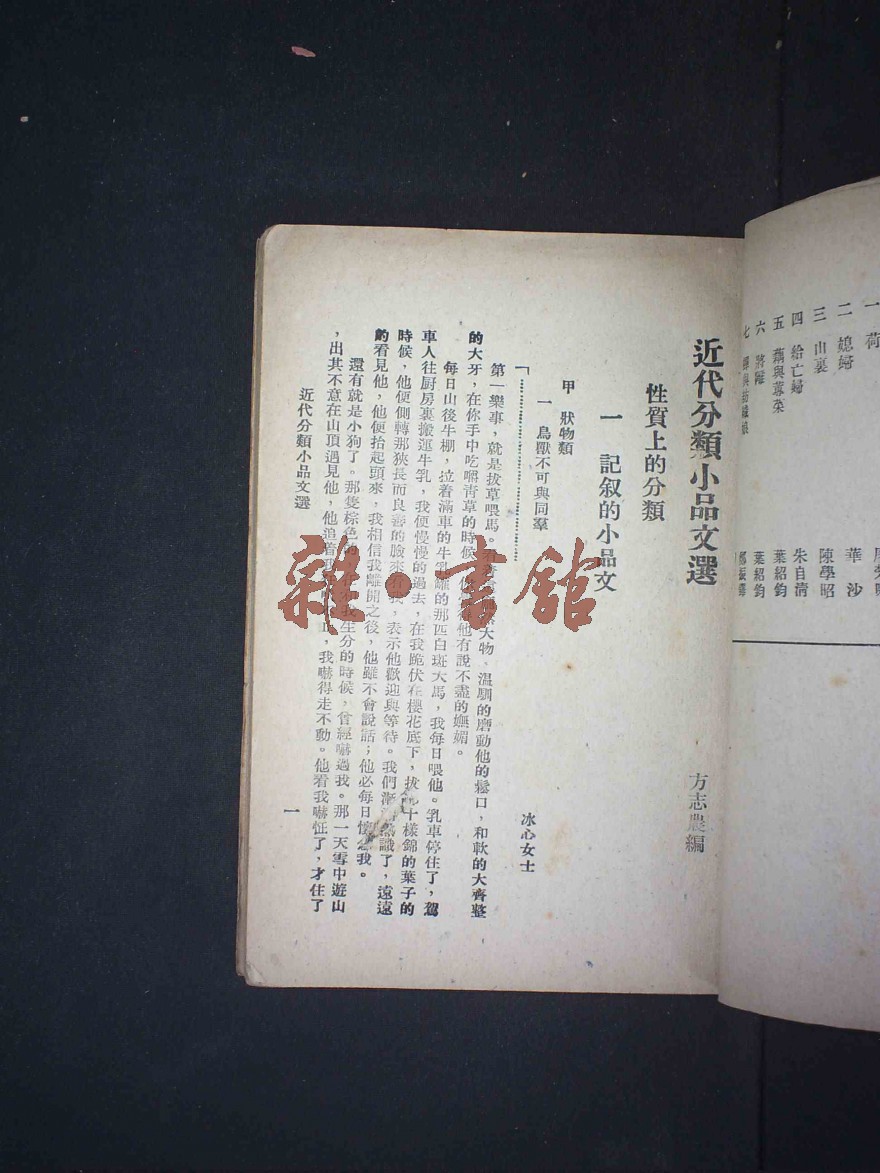 一 荷
二 媳婦 華 沙
三 山裏 陳學昭
四 給亡婦 朱自清
五 藕與蓴菜 葉紹鈞
六 將離 葉紹鈞
七
近代分類小品文選
方志農編
性質上的分類
一 記叙的小品文
甲 狀物類
一 鳥獸不可與同羣
冰心女士
「…………………………
第一樂事，就是拔草喂馬。 大物，溫馴的磨動他的鬆口，和軟的大齊整
的大牙，在你手中吃嚼青草的時候， 他有說不盡的嫵媚。
每日山後牛棚，拉着滿車的牛乳罐的那匹白斑大馬，我每日喂他。乳車停住了，駕
車人往厨房裏搬運牛乳，我便慢慢的過去，在我跪伏在櫻花底下，拔 十樣錦的葉子的
時候，他便側轉那狹長而良善的臉來看我，表示他歡迎與等待。我們漸 熟識了，遠遠
的看見他，他便抬起頭來，我相信我離開之後，他雖不會說話；他必每日懷念我。
還有就是小狗了。那隻棕色的， 我生分的時候，曾經嚇過我。那一天雪中遊山
，出其不意在山頂遇見他，他追着我 ，我嚇得走不動。他看我嚇怔了，才住了
近代分類小品文選
一
雜·書館